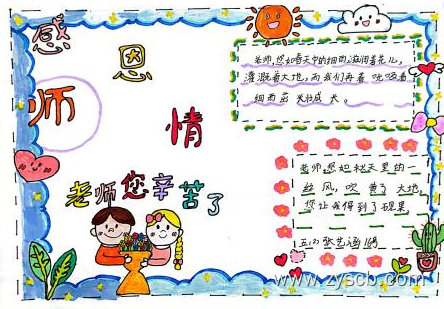 感
恩
师
情
老师您辛苦了
老师,您如春天中的细雨,滋润着花儿,
灌溉着大地,而我们再着吮吸着
细雨茁壮成长。
老师您如秋天里的一
丝风,吹黄了大地,
您让我得到了硕果
张艺涵
www.zyscb.com